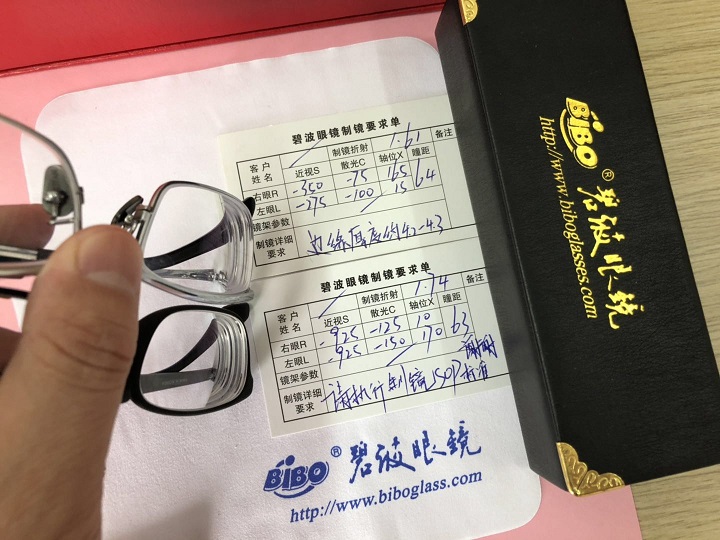 碧波眼镜制镜要求单
客户姓名 制镜折射 1.61 备注
近视S 散光C 轴位X 瞳距
右眼R -350 -75 165 64
左眼L -275 -100 15
镜架参数
制镜详细要求 边缘厚度约4.2-4.3
碧波眼镜制镜要求单
客户姓名 制镜折射 1.74 备注
近视S 散光C 轴位X 瞳距
右眼R -925 -125 10 63
左眼L -925 -150 170
镜架参数
制镜详细要求 请执行制镜SOP标准 谢谢
BiBO® 碧波眼镜
http://www.biboglass.com
BiBO® 碧波眼镜
http://www.biboglasses.com